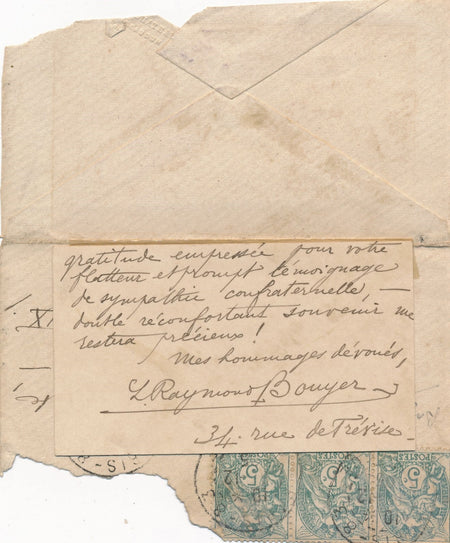 gratitude empressée pour votre
flatteur et prompt témoignage
de sympathie confraternelle, —
double réconfortant souvenir me
restera précieux !
Mes hommages dévoués,
L. Raymond Bouyer
34. rue de Trévise
5 5 5
POSTES